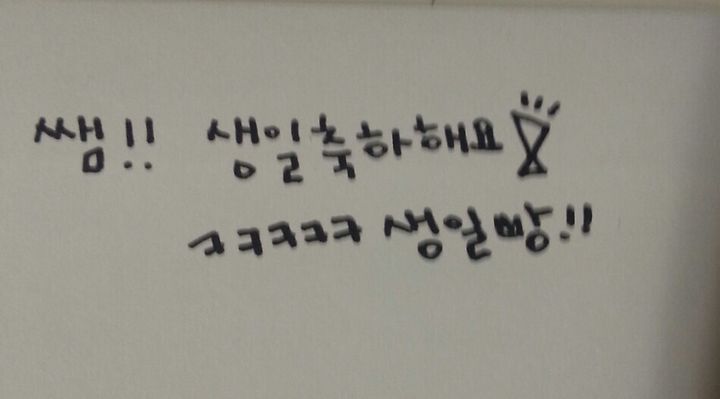 쌤!! 생일축하해요
ㅋㅋㅋㅋㅋ 생일빵!!